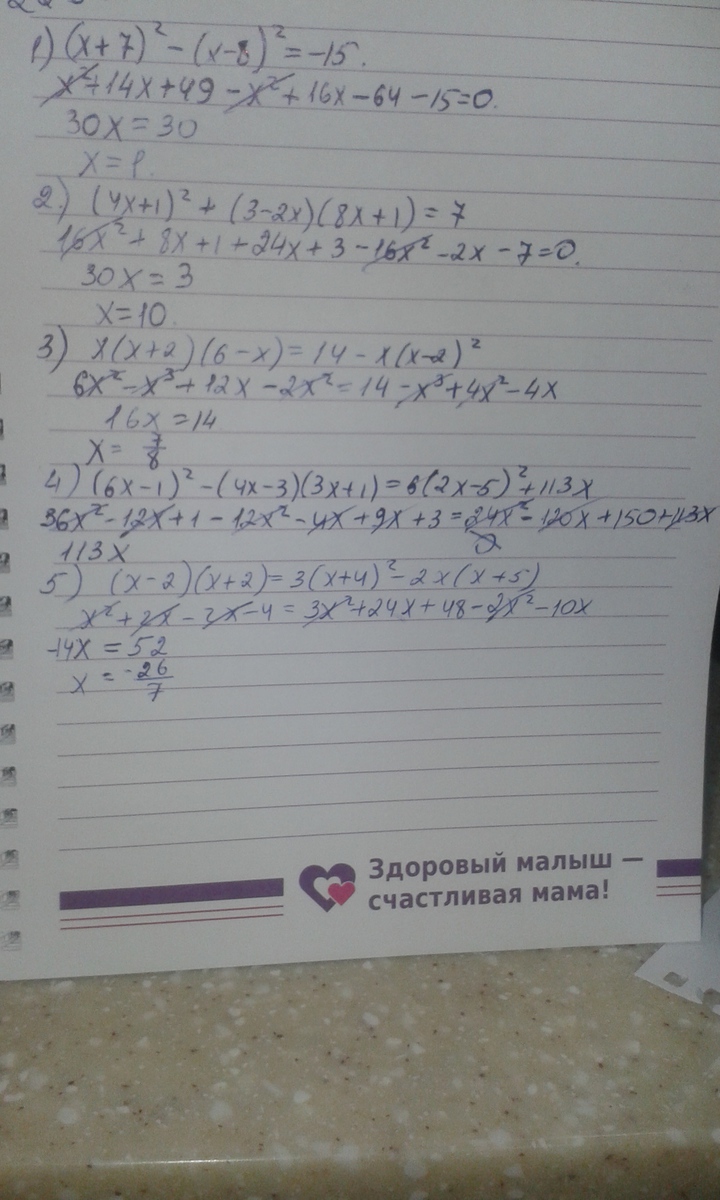 1) (x+7)² - (x-8)² = -15.
x² + 14x + 49 - x² + 16x - 64 - 15 = 0.
30x = 30
x = 1.
2) (4x+1)² + (3-2x)(8x+1) = 7
16x² + 8x + 1 + 24x + 3 - 16x² - 2x - 7 = 0.
30x = 3
x = 10.
3) x(x+2)(6-x) = 14 - x(x-2)²
6x² - x³ + 12x - 2x² = 14 - x³ + 4x² - 4x
16x = 14
x = 7/8
4) (6x-1)² - (4x-3)(3x+1) = 6(2x-5)² + 113x
36x² - 12x + 1 - 12x² - 4x + 9x + 3 = 24x² - 120x + 150 + 113x
113x 0
5) (x-2)(x+2) = 3(x+4)² - 2x(x+5)
x² + 2x - 2x - 4 = 3x² + 24x + 48 - 2x² - 10x
-14x = 52
x = -26/7
Здоровый малыш —
счастливая мама!